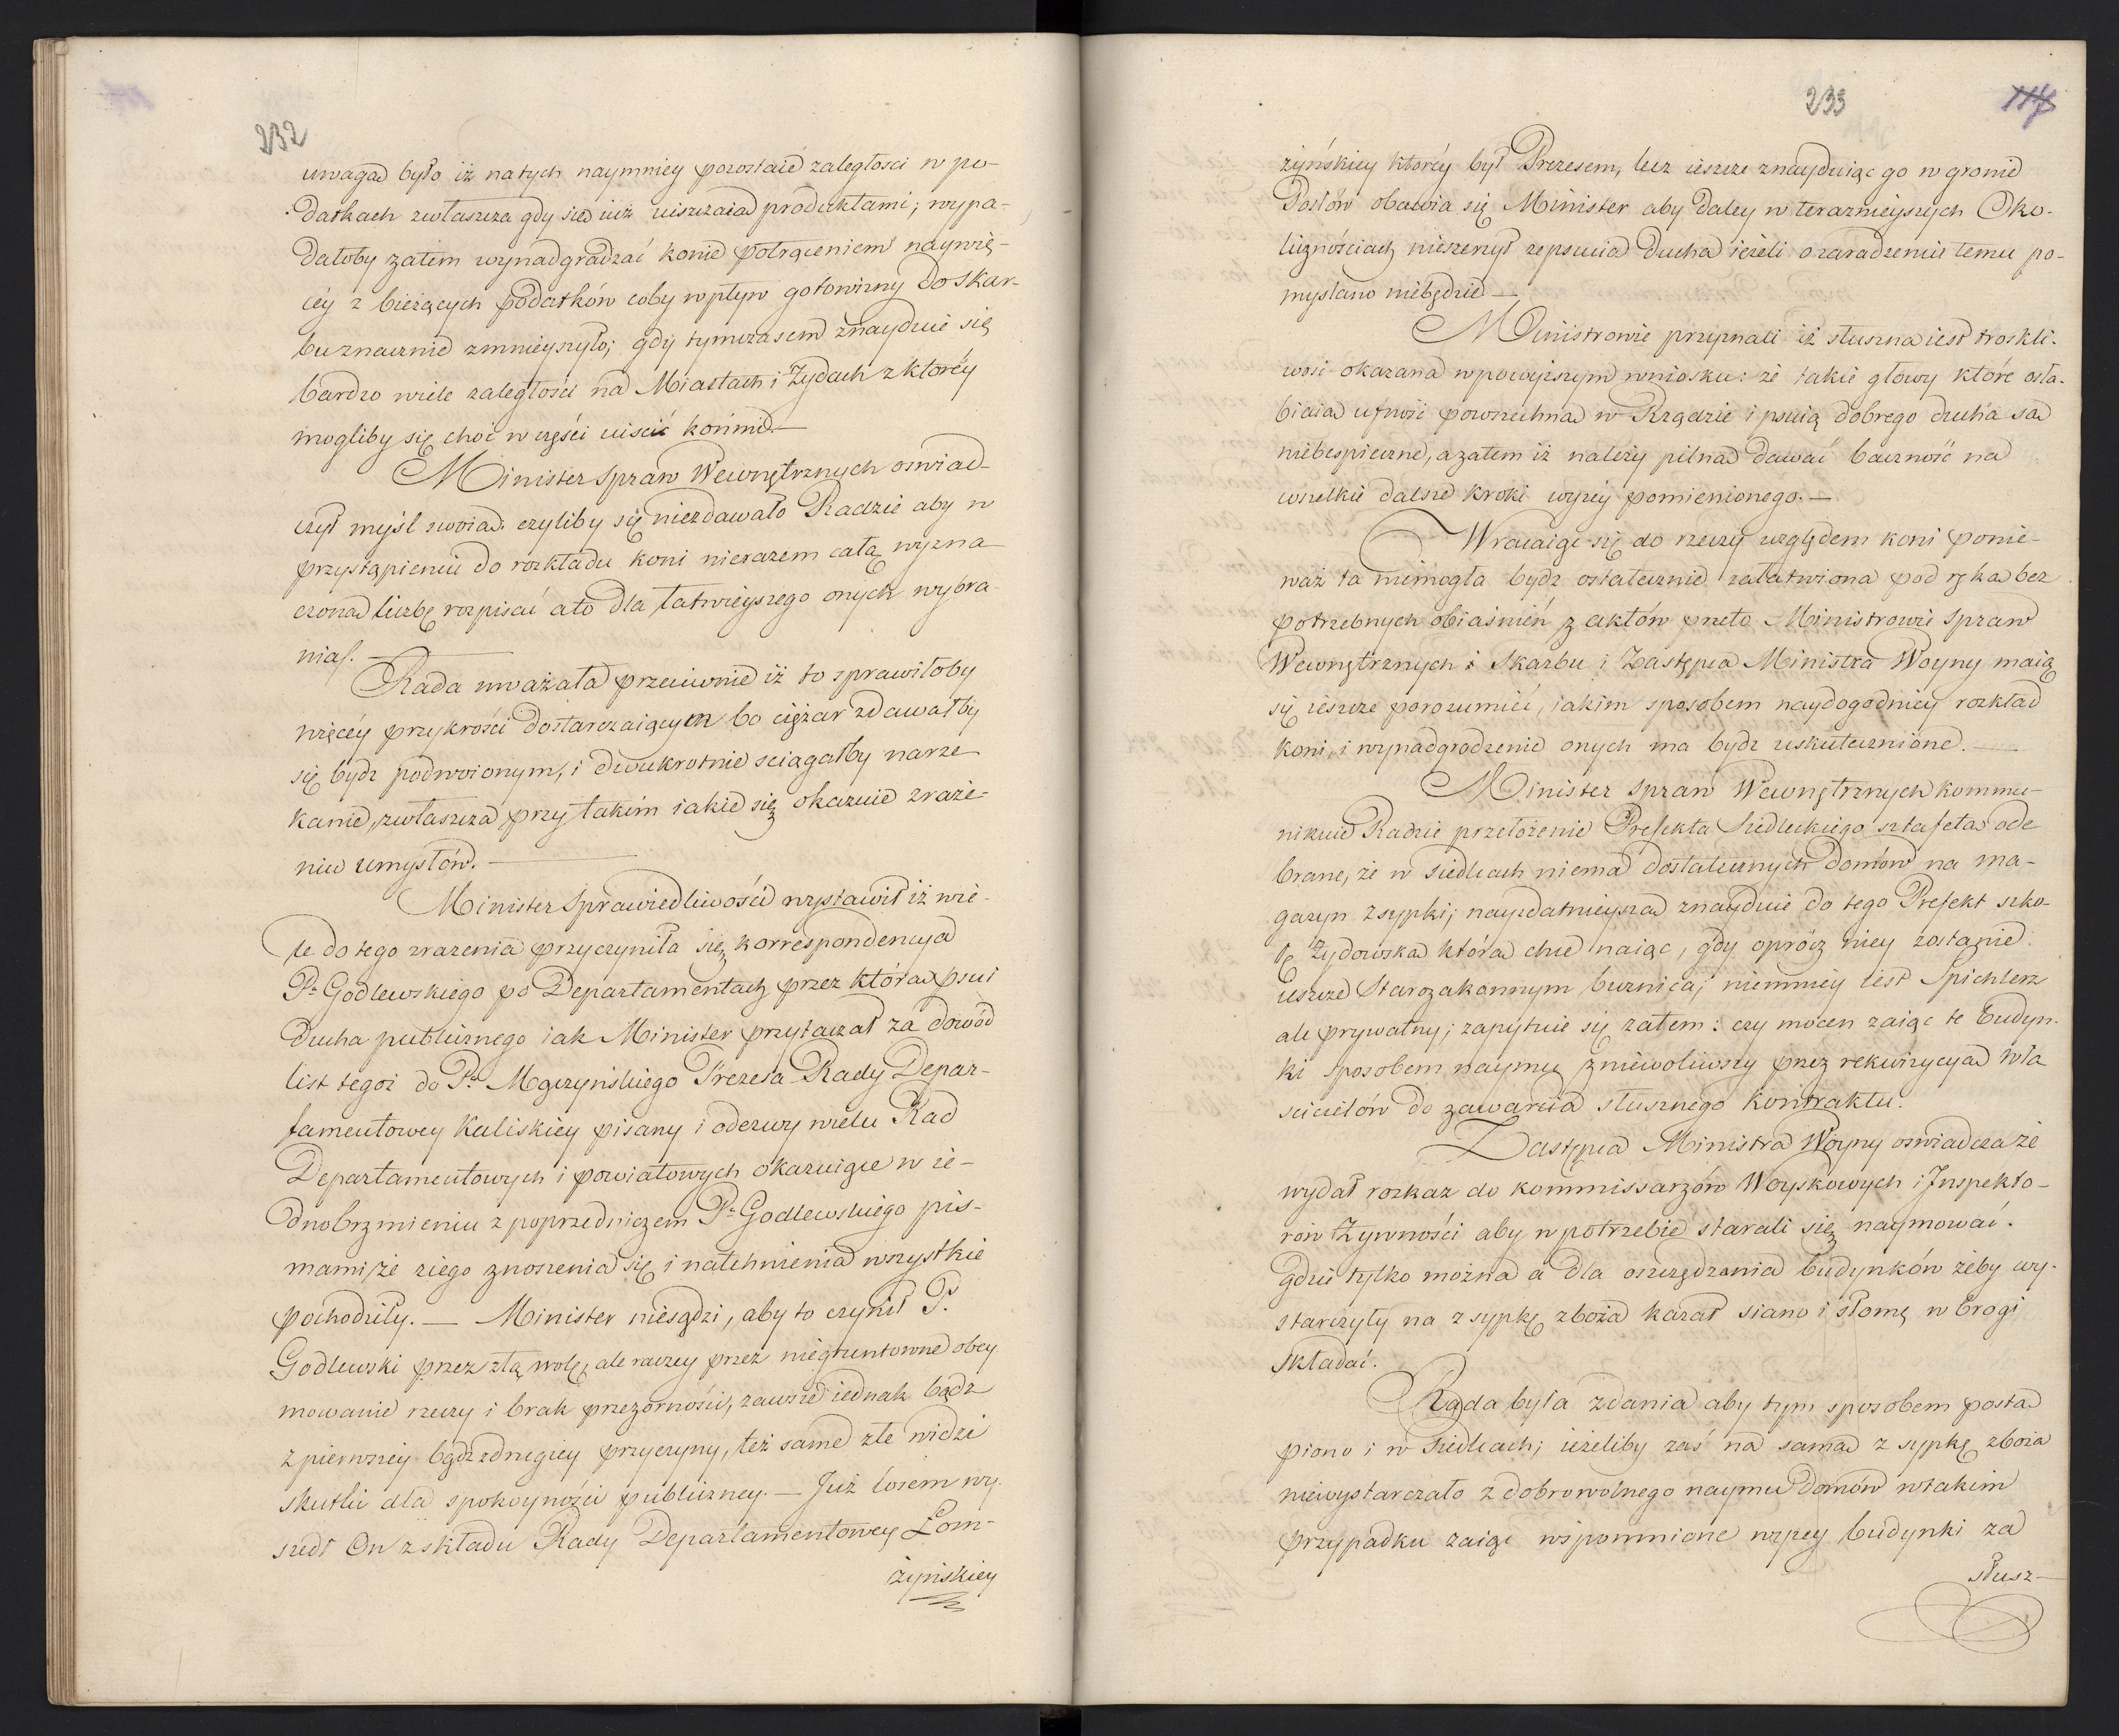 232
uwagą było iż na tych naymniey pozostaie zaległości w po-
datkach zwłaszcza gdy się iuż uiszczaią produktami; wypa-
dałoby zatem wynadgradzać konie potrąceniem naywię-
céy z bieżących podatków coby wpływ gotowizny do Skar-
bu znacznie zmnieyszyło; gdy tymczasem znayduie się
bardzo wiele zaległości na Miastach i Żydach z któréy
mogliby się choć w części uiścić końmi.—
Minister Spraw Wewnętrznych oswiad-
czył myśl swoią: czyliby się niezdawało Radzie aby w
przystąpieniu do rozkładu koni nierazem całą wyzna-
czoną liczbę rozpisać a to dla łatwieyszego onych wybra-
nia.—
Rada uważała przeciwnie iż to sprawiłoby
więcéy przykrości dostarczaiącym bo ciężar zdawałby
się bydz podwoionym, i dwukrotnie sciągałby narze-
kanie, zwłaszcza przy takim iakie się okazuie zraże-
niu umysłów.—
Minister Sprawiedliwości wystawił iż wie-
le do tego zrażenia przyczyniła się korrespondencya
Pa Godlewskiego po Departamentach przez którą psui
Ducha publicznego iak Minister przytaczał za dowód
list tegoż do Pa Mączyńskiego Prezesa Rady Depar-
tamentowey Kaliskiey pisany i odezwy wielu Rad
Departamentowych i powiatowych okazuiące w ie-
dnobrzmieniu z poprzedniczem Pa Godlewskiego pis-
mami, że z iego znoszenia się i natchnienia wszystkie
pochodziły.— Minister niesądzi, aby to czynił P.
Godlewski przez złą wolę, ale raczey przez niegruntowne obey-
mowanie rzeczy i brak przezorności, zawsze iednak bądź
z pierwszey bądź z drugiey przyczyny, też same złe widzi
skutki dla spokoyności publiczney.— Już losem wy-
szedł On z składu Rady Departamentowey Łom-
żyńskiey
233
117
żyńskiey któréy był Prezesem, lecz ieszcze znayduiąc go w gronie
Posłów obawia się Minister aby daley w teraznieyszych Oko-
licznościach nieszerzył zepsucia Ducha ieżeli o zaradzeniu temu po-
myślano niebędzie—
Ministrowie przyznali iż słuszna iest troskli-
wość okazana w powyższym wniosku: że takie głowy które osła-
biaią ufność powszechną w Rządzie i psuią dobrego ducha są
niebespieczne, a zatem iż należy pilną dawać baczność na
wszelkie dalsze kroki wyżey pomienionego.—
Wracaiąc się do rzeczy względem koni ponie-
waż ta niemogła bydz ostatecznie załatwiona pod ręką bez
potrzebnych obiaśnień z aktów przeto Ministrowie Spraw
Wewnętrznych i Skarbu i Zastępca Ministra Woyny maią
się ieszcze porozumieć, iakim sposobem naydogodniey rozkład
koni, i wynadgrodzenie onych ma bydz uskutecznione.—
Minister Spraw Wewnętrznych kommu-
nikuie Radzie przełożenie Prefekta Siedleckiego sztafetą ode-
brane, że w Siedlcach niema dostatecznych domów na ma-
gazyn zsypki; nayzdatnieyszą znayduie do tego Prefekt szko-
łę Żydowską którą chce naiąc, gdy oprócz niey zostanie
ieszcze Starozakonnym bużnica; niemniey iest Spichlerz
ale prywatny; zapytuie się zatem: czy mocen zaiąc te budyn-
ki sposobem naymu zniewoliwszy przez rekwizycyą wła-
scicielów do zawarcia słusznego kontraktu.
Zastępca Ministra Woyny oswiadcza że
wydał rozkaz do kommissarzów Woyskowych i Inspekto-
rów Żywności aby w potrzebie starali się naymować
gdzie tylko można a dla oszczędzania budynków żeby wy-
starczyły na zsypkę zboża kazał siano i słomę w brogi
składać.
Rada była zdania aby tym sposobem postą-
piono i w Siedlcach; ieżeliby zaś na samą zsypkę zboża
niewystarczało z dobrowolnego naymu domów w takim
przypadku zaiąc wspomnione wyżey budynki za
słusz-